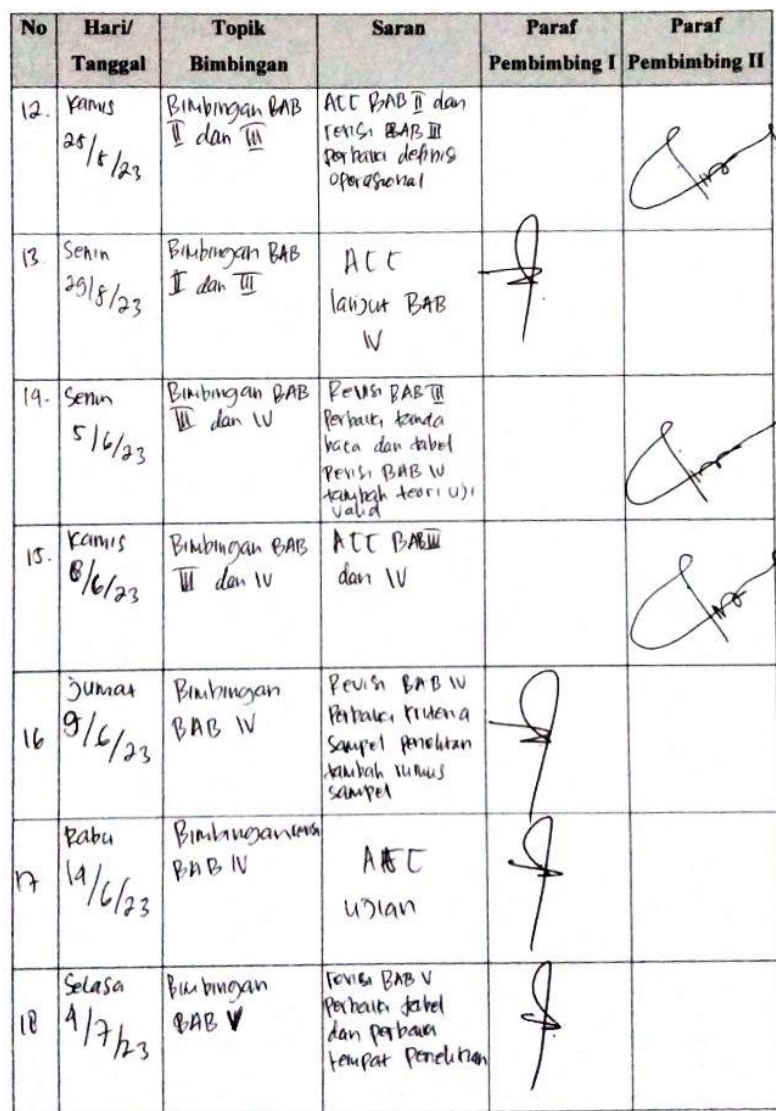 No Hari/ Topik Saran Paraf Paraf
Tanggal Bimbingan Pembimbing I Pembimbing II
12. Kamis
25/5/23
Bimbingan BAB
II dan III
ACC BAB II dan
revisi BAB III
perbaiki definis
operasional
13. Senin
29/8/23
Bimbingan BAB
II dan III
ACC
lanjut BAB
IV
14. Senin
5/6/23
Bimbingan BAB
III dan IV
Revisi BAB III
Perbaiki tanda
baca dan tabel
Revisi BAB IV
tambah teori uji
valid
15. Kamis
8/6/23
Bimbingan BAB
III dan IV
ACC BAB III
dan IV
16 Jumat
9/6/23
Bimbingan
BAB IV
Revisi BAB IV
Perbaiki kriteria
sampel penelitian
tambah rumus
sampel
17 Rabu
14/6/23
Bimbingan revisi
BAB IV
ACC
ujian
18 Selasa
4/7/23
Bimbingan
BAB V
revisi BAB V
perbaiki tabel
dan perbaiki
tempat penelitian